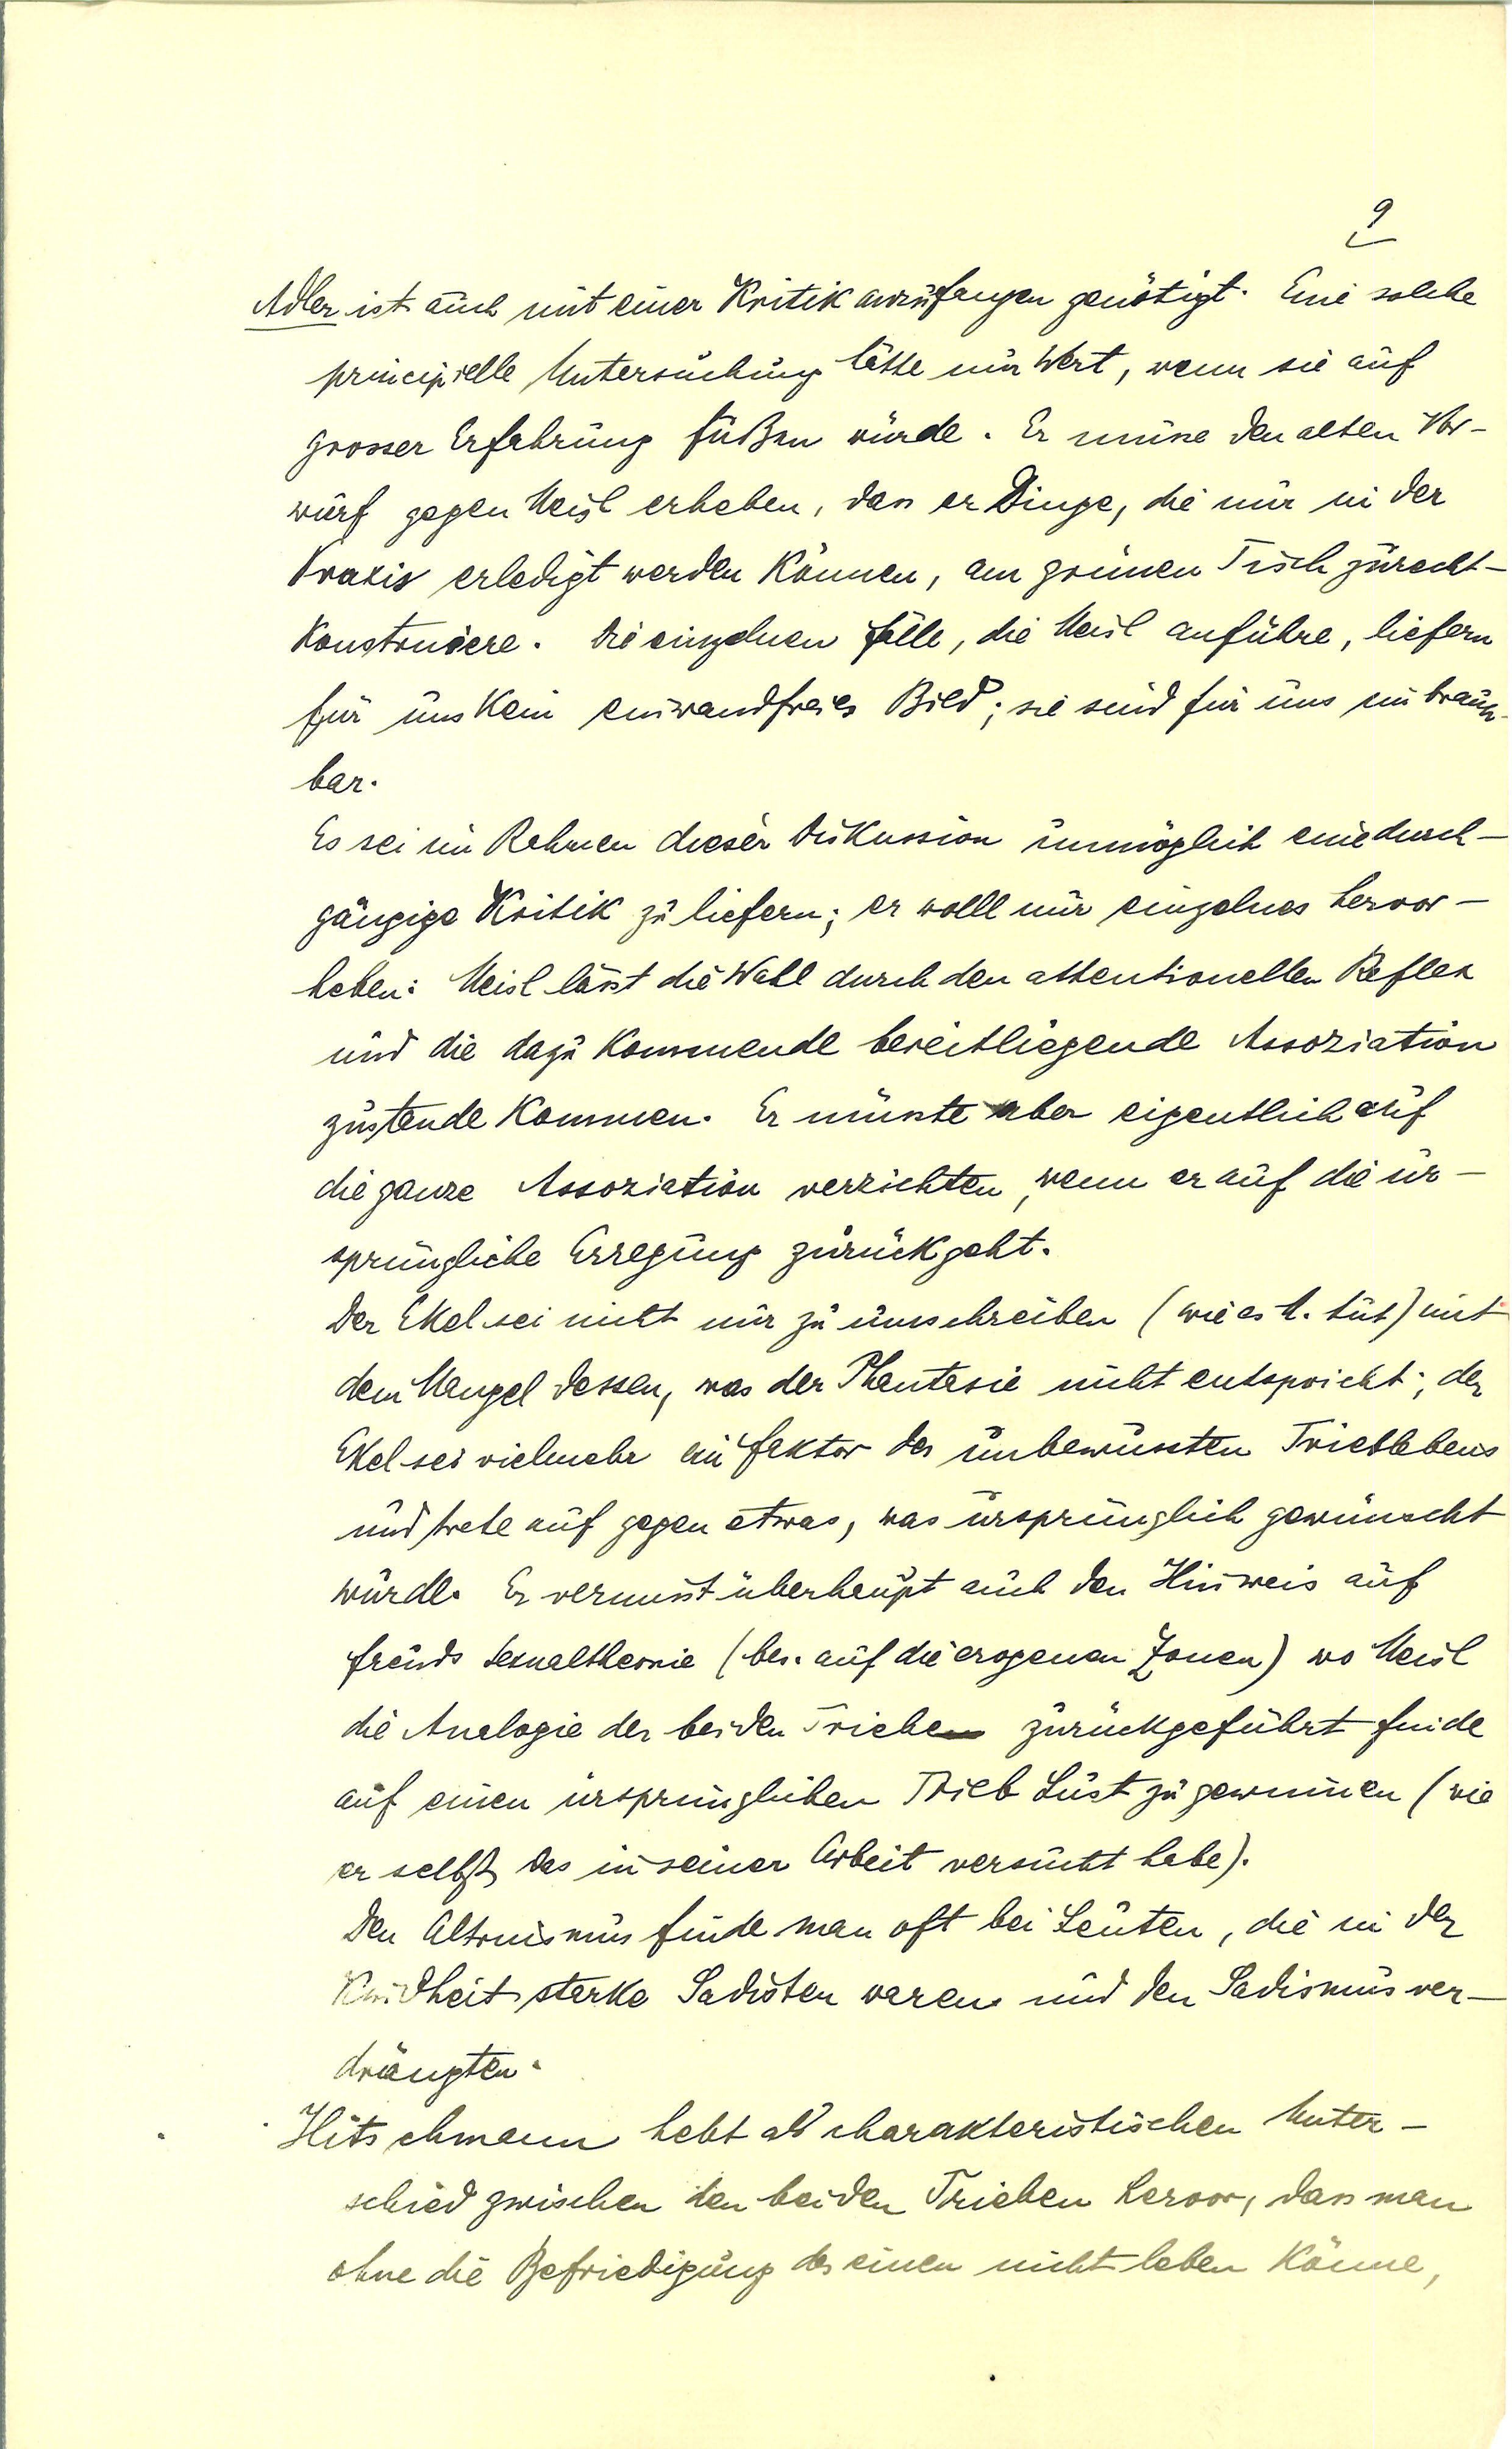 9
Adler ist auch mit einer Kritik anzufangen genötigt. Eine solche
principielle Untersuchung hätte nur Wert, wenn sie auf
grosser Erfahrung fußen würde. Er müsse den alten Vor-
wurf gegen Meisl erheben, dass er Dinge, die nur in der
Praxis erledigt werden können, am grünen Tisch zurecht-
konstruiere. Die einzelnen Fälle, die Meisl anführe, liefern
für uns kein einwandfreies Bild; sie sind für uns unbrauch-
bar.
Es sei im Rahmen dieser Diskussion unmöglich eine durch-
gängige Kritik zu liefern; er wolle nur einzelnes hervor-
heben: Meisl lässt die Wahl durch den attentionellen Reflex
und die dazu kommende bereitliegende Assoziation
zustande kommen. Er müsste aber eigentlich auf
die ganze Assoziation verzichten, wenn er auf die ur-
sprüngliche Erregung zurückgeht.
Der Ekel sei nicht nur zu umschreiben (wie es M. tut) mit
dem Mangel dessen, was der Phantasie nicht entspricht; der
Ekel sei vielmehr ein Faktor des unbewussten Trieblebens
und trete auf gegen etwas, was ursprünglich gewünscht
wurde. Er vermisst überhaupt auch den Hinweis auf
Freuds Sexualtheorie (bes. auf die erogenen Zonen) wo Meisl
die Analogie der beiden Triebe zurückgeführt finde
auf einen ursprünglichen Trieb Lust zu gewinnen (wie
er selbst das in seiner Arbeit versucht habe).
Den Altruismus finde man oft bei Leuten, die in der
Kindheit starke Sadisten waren und den Sadismus ver-
drängten.
Hitschmann hebt als charakteristischen Unter-
schied zwischen den beiden Trieben hervor, dass man
ohne die Befriedigung des einen nicht leben könne,